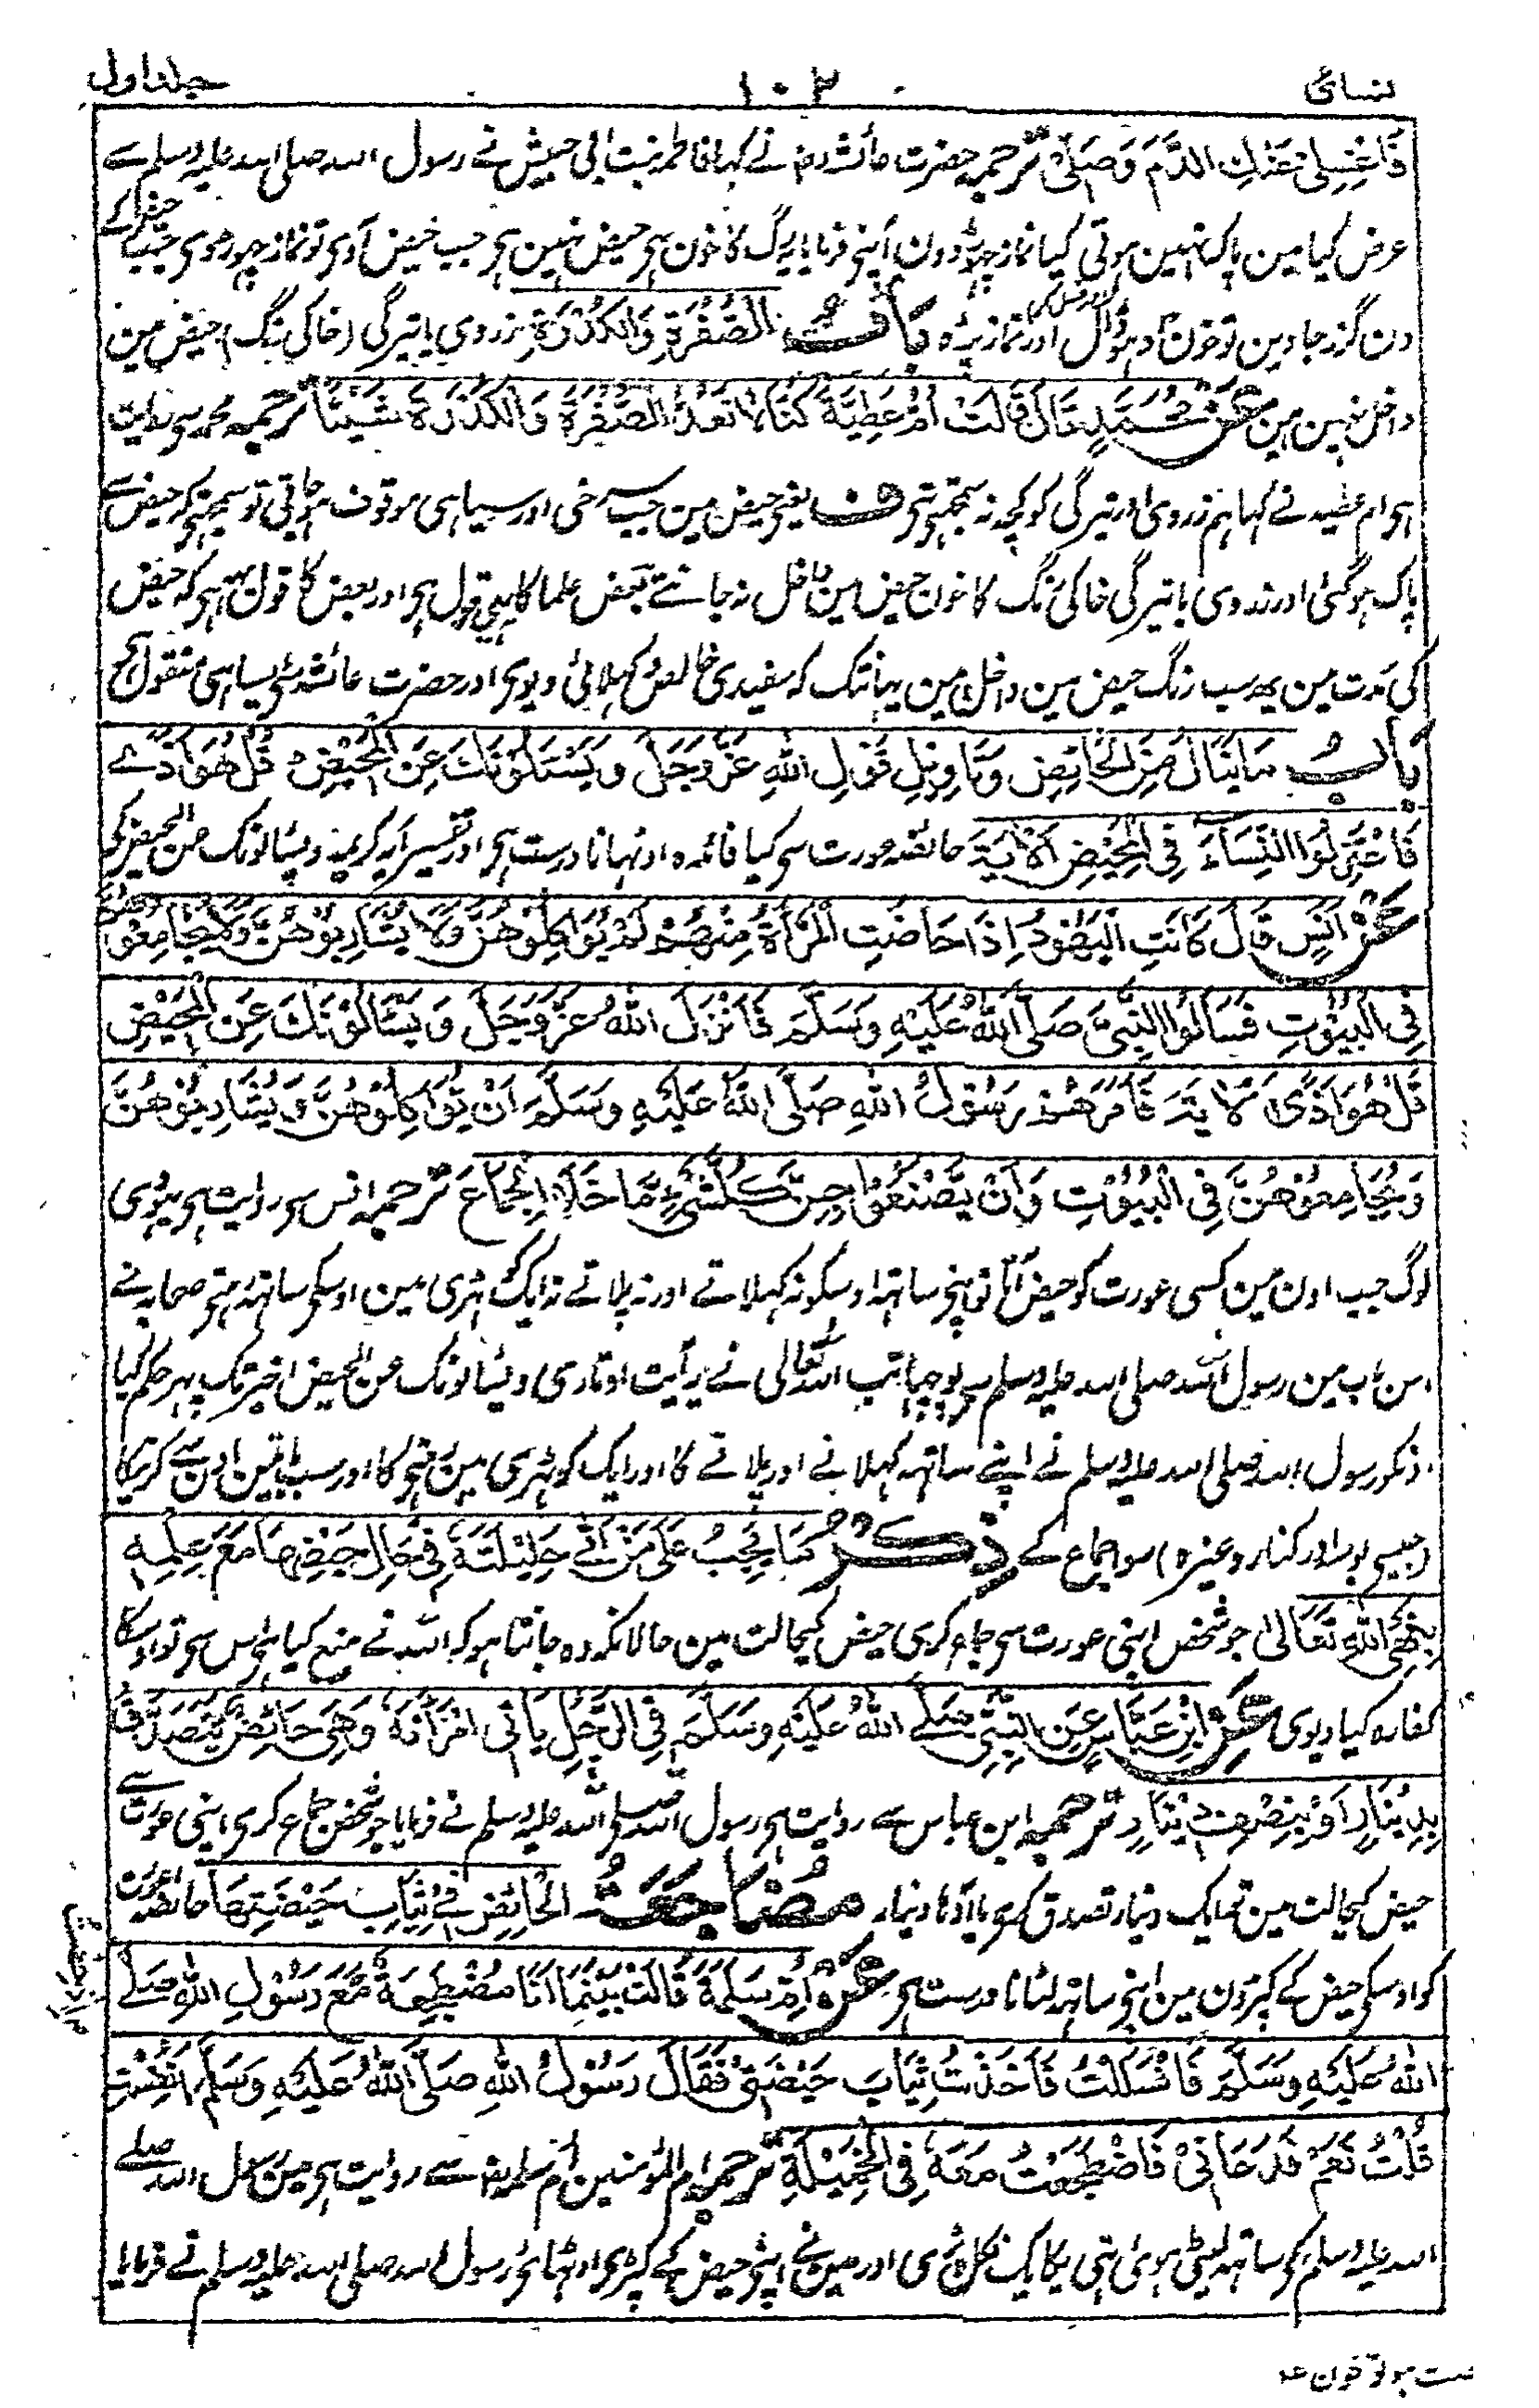 نسائی ١٠٢ جلد اول
فَاغْسِلِیْ عَنْكِ الدَّمَ وَصَلِّیْ ترجمہ حضرت عائشہ رض نے کہا فاطمہ بنت ابی حبیش نے رسول اللہ صلی اللہ علیہ وسلم سے
عرض کیا مین پاک نہین ہوتی کیا نماز چھوڑ دون آپنے فرمایا یہ رگ کا خون ہی حیض نہین ہی جب حیض آوی تو نماز چھوڑ دی جب حیض کے
دن گزر جاوین تو خون دہو ڈال اور نماز پڑہ بَابُ الصُّفْرَةِ وَالْكُدْرَةِ زردی یا تیرگی (خاکی رنگ) حیض مین
داخل نہین ہین عَنْ مُحَمَّدٍ قَالَ قَالَتْ اُمُّ عَطِيَّةَ كُنَّا لَا نَعُدُّ الصُّفْرَةَ وَالْكُدْرَةَ شَيْئًا ترجمہ محمد سی روایت
ہی ام عطیہ نے کہا ہم زردی اور تیرگی کو کچھ نہ سمجھتی تہی ف یعنی حیض مین جب سرخی اور سیاہی موقوف ہو جاتی تو سمجھتی کہ حیض سے
پاک ہو گئی اور زردی یا تیرگی خاکی رنگ کا خون حیض مین داخل نہ جانتے بعض علما کا یہی قول ہی اور بعض کا قول یہ ہی کہ حیض
کی مدت مین یہ سب رنگ حیض مین داخل ہین یہانتک کہ سفیدی خالص دکہلائی دیوی اور حضرت عائشہ سی ایسا ہی منقول ہی
بَابُ مَا يَنَالُ مِنَ الْحَائِضِ وَتَاوِيْلِ قَوْلِ اللّٰهِ عَزَّ وَجَلَّ وَيَسْئَلُوْنَكَ عَنِ الْمَحِيْضِ قُلْ هُوَ اَذًے
فَاعْتَزِلُوا النِّسَاءَ فِی الْمَحِيْضِ الْاٰيَةَ حائضہ عورت سی کیا فائدہ اوٹہانا درست ہی اور تفسیر آیہ کریمہ ویسئالونک عن المحیض کی
عَنْ اَنَسٍ قَالَ كَانَتِ الْيَهُوْدُ اِذَا حَاضَتِ الْمَرْأَةُ مِنْهُمْ لَمْ يُوَاكِلُوْهُنَّ وَلَا يُشَارِبُوْهُنَّ وَلَا يُجَامِعُوْهُنَّ
فِی الْبُيُوْتِ فَسَاَلُوا النَّبِیَّ صَلَّی اللّٰهُ عَلَيْهِ وَسَلَّمَ فَاَنْزَلَ اللّٰهُ عَزَّ وَجَلَّ وَيَسْئَالُوْنَكَ عَنِ الْمَحِيْضِ
قُلْ هُوَ اَذًی الْاٰيَةَ فَاَمَرَهُمْ رَسُوْلُ اللّٰهِ صَلَّی اللّٰهُ عَلَيْهِ وَسَلَّمَ اَنْ يُّوَاكِلُوْهُنَّ وَيُشَارِبُوْهُنَّ
وَيُجَامِعُوْهُنَّ فِی الْبُيُوْتِ وَاَنْ يَّصْنَعُوْا بِهِنَّ كُلَّ شَیْءٍ مَّا خَلَا الْجِمَاعَ ترجمہ انس سی روایت ہی یہودی
لوگ جب اون مین کسی عورت کو حیض آتا تو اپنی ساتہہ اوسکو نہ کہلاتے اور نہ پلاتے نہ ایک کوٹہری مین اوسکی ساتہہ رہتی صحابہ نے
اس باب مین رسول اللہ صلی اللہ علیہ وسلم سی پوچہا تب اللہ تعالی نے یہ آیت اوتاری ویسئالونک عن المحیض اخیر تک پہر حکم کیا
انکو رسول اللہ صلی اللہ علیہ وسلم نے اپنے ساتہہ کہلانے اور پلانے کا اور ایک کوٹہری مین رہنی کا اور سب باتین اون سے کرنیکا
(جیسی بوسہ اور کنار وغیرہ) سوا جماع کے ذِكْرُ مَا يَجِبُ عَلٰی مَنْ اَتٰی حَلِيْلَتَهٗ فِی حَالِ حَيْضِهَا مَعَ عِلْمِهٖ
بِنَهْیِ اللّٰهِ تَعَالٰی جو شخص اپنی عورت سی جماع کری حیض کیحالت مین حالانکہ وہ جانتا ہو کہ اللہ نے منع کیا ہی اس سی تو اوسکا
کفارہ کیا دیوی عَنْ ابْنِ عَبَّاسٍ عَنِ النَّبِیِّ صَلَّے اللّٰهُ عَلَيْهِ وَسَلَّمَ فِی الرَّجُلِ يَاْتِی امْرَاَتَهٗ وَهِیَ حَائِضٌ يَتَصَدَّقُ
بِدِيْنَارٍ اَوْ بِنِصْفِ دِيْنَارٍ ترجمہ ابن عباس سے روایت ہی رسول اللہ صلی اللہ علیہ وسلم نے فرمایا جو شخص جماع کری اپنی عورت سے
حیض کیحالت مین تو ایک دینار تصدق کری یا آدہا دینار مُضَاجَعَةُ الْحَائِضِ فِیْ ثِيَابِ حَيْضَتِهَا حائضہ عورت
کو اوسکی حیض کے کپڑون مین اپنی ساتہہ لٹانا درست ہی عَنْ اُمِّ سَلَمَةَ قَالَتْ بَيْنَمَا اَنَا مُضْطَجِعَةٌ مَّعَ رَسُوْلِ اللّٰهِ صَلَّے
اللّٰهُ عَلَيْهِ وَسَلَّمَ فَانْسَلَلْتُ فَاَخَذْتُ ثِيَابَ حَيْضَتِیْ فَقَالَ رَسُوْلُ اللّٰهِ صَلَّی اللّٰهُ عَلَيْهِ وَسَلَّمَ اَنَفِسْتِ
قُلْتُ نَعَمْ فَدَعَانِیْ فَاضْطَجَعْتُ مَعَهٗ فِی الْخَمِيْلَةِ ترجمہ ام المؤمنین ام سلمہ رض سے روایت ہی مین رسول اللہ صلے
اللہ علیہ وسلم کی ساتہہ لیٹی ہوئی تہی یکایک نکل پڑی اور مین نے اپنی حیض کے کپڑی اوٹہائی رسول اللہ صلی اللہ علیہ وسلم نے فرمایا